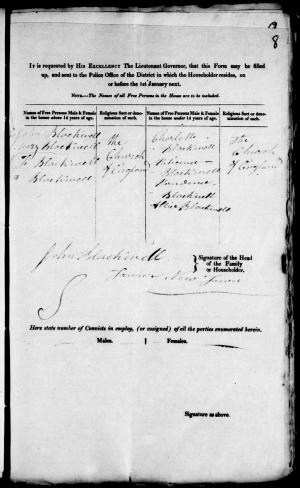 8
IT is requested by HIS EXCELLENCY The Lieutenant Governor, that this Form may be filled
up, and sent to the Police Office of the District in which the Householder resides, on
or before the 1st January next.
NOTE.—The Names of all Free Persons in the House are to be included.
Names of Free Persons Male & Female in the house above 14 years of age.
Religious Sect or denomination of each.
Names of Free Persons Male & Female in the house under 14 years of age.
Religious Sect or denomination of each.
John Blackwell
Mary Blackwell
Blackwell
Blackwell
the
Church
of England
Charlotte
Blackwell
Blackwell
Prudence
Blackwell
Blackwell
the
Church
of England
John Blackwell
Signature of the Head
of the Family
or Householder.
Farmer New Town
Here state number of Convicts in employ, (or assigned) of all the parties enumerated herein.
Males.
Females.
Signature as above.